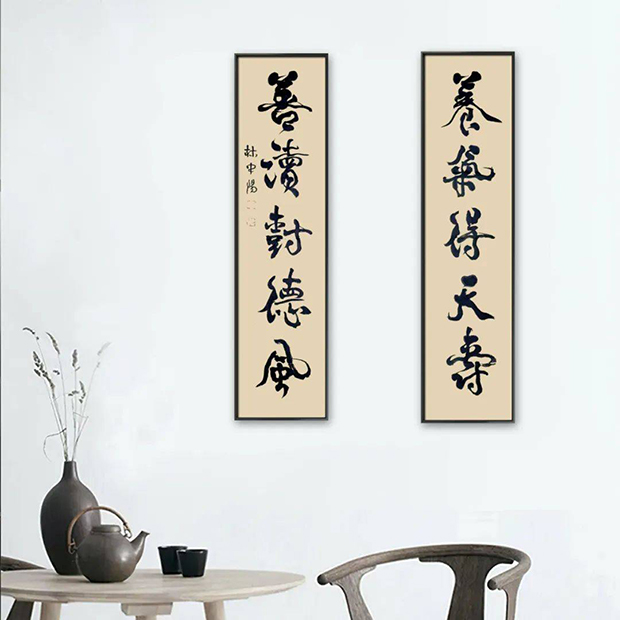 養氣得天壽
善讀對德風
林中陽